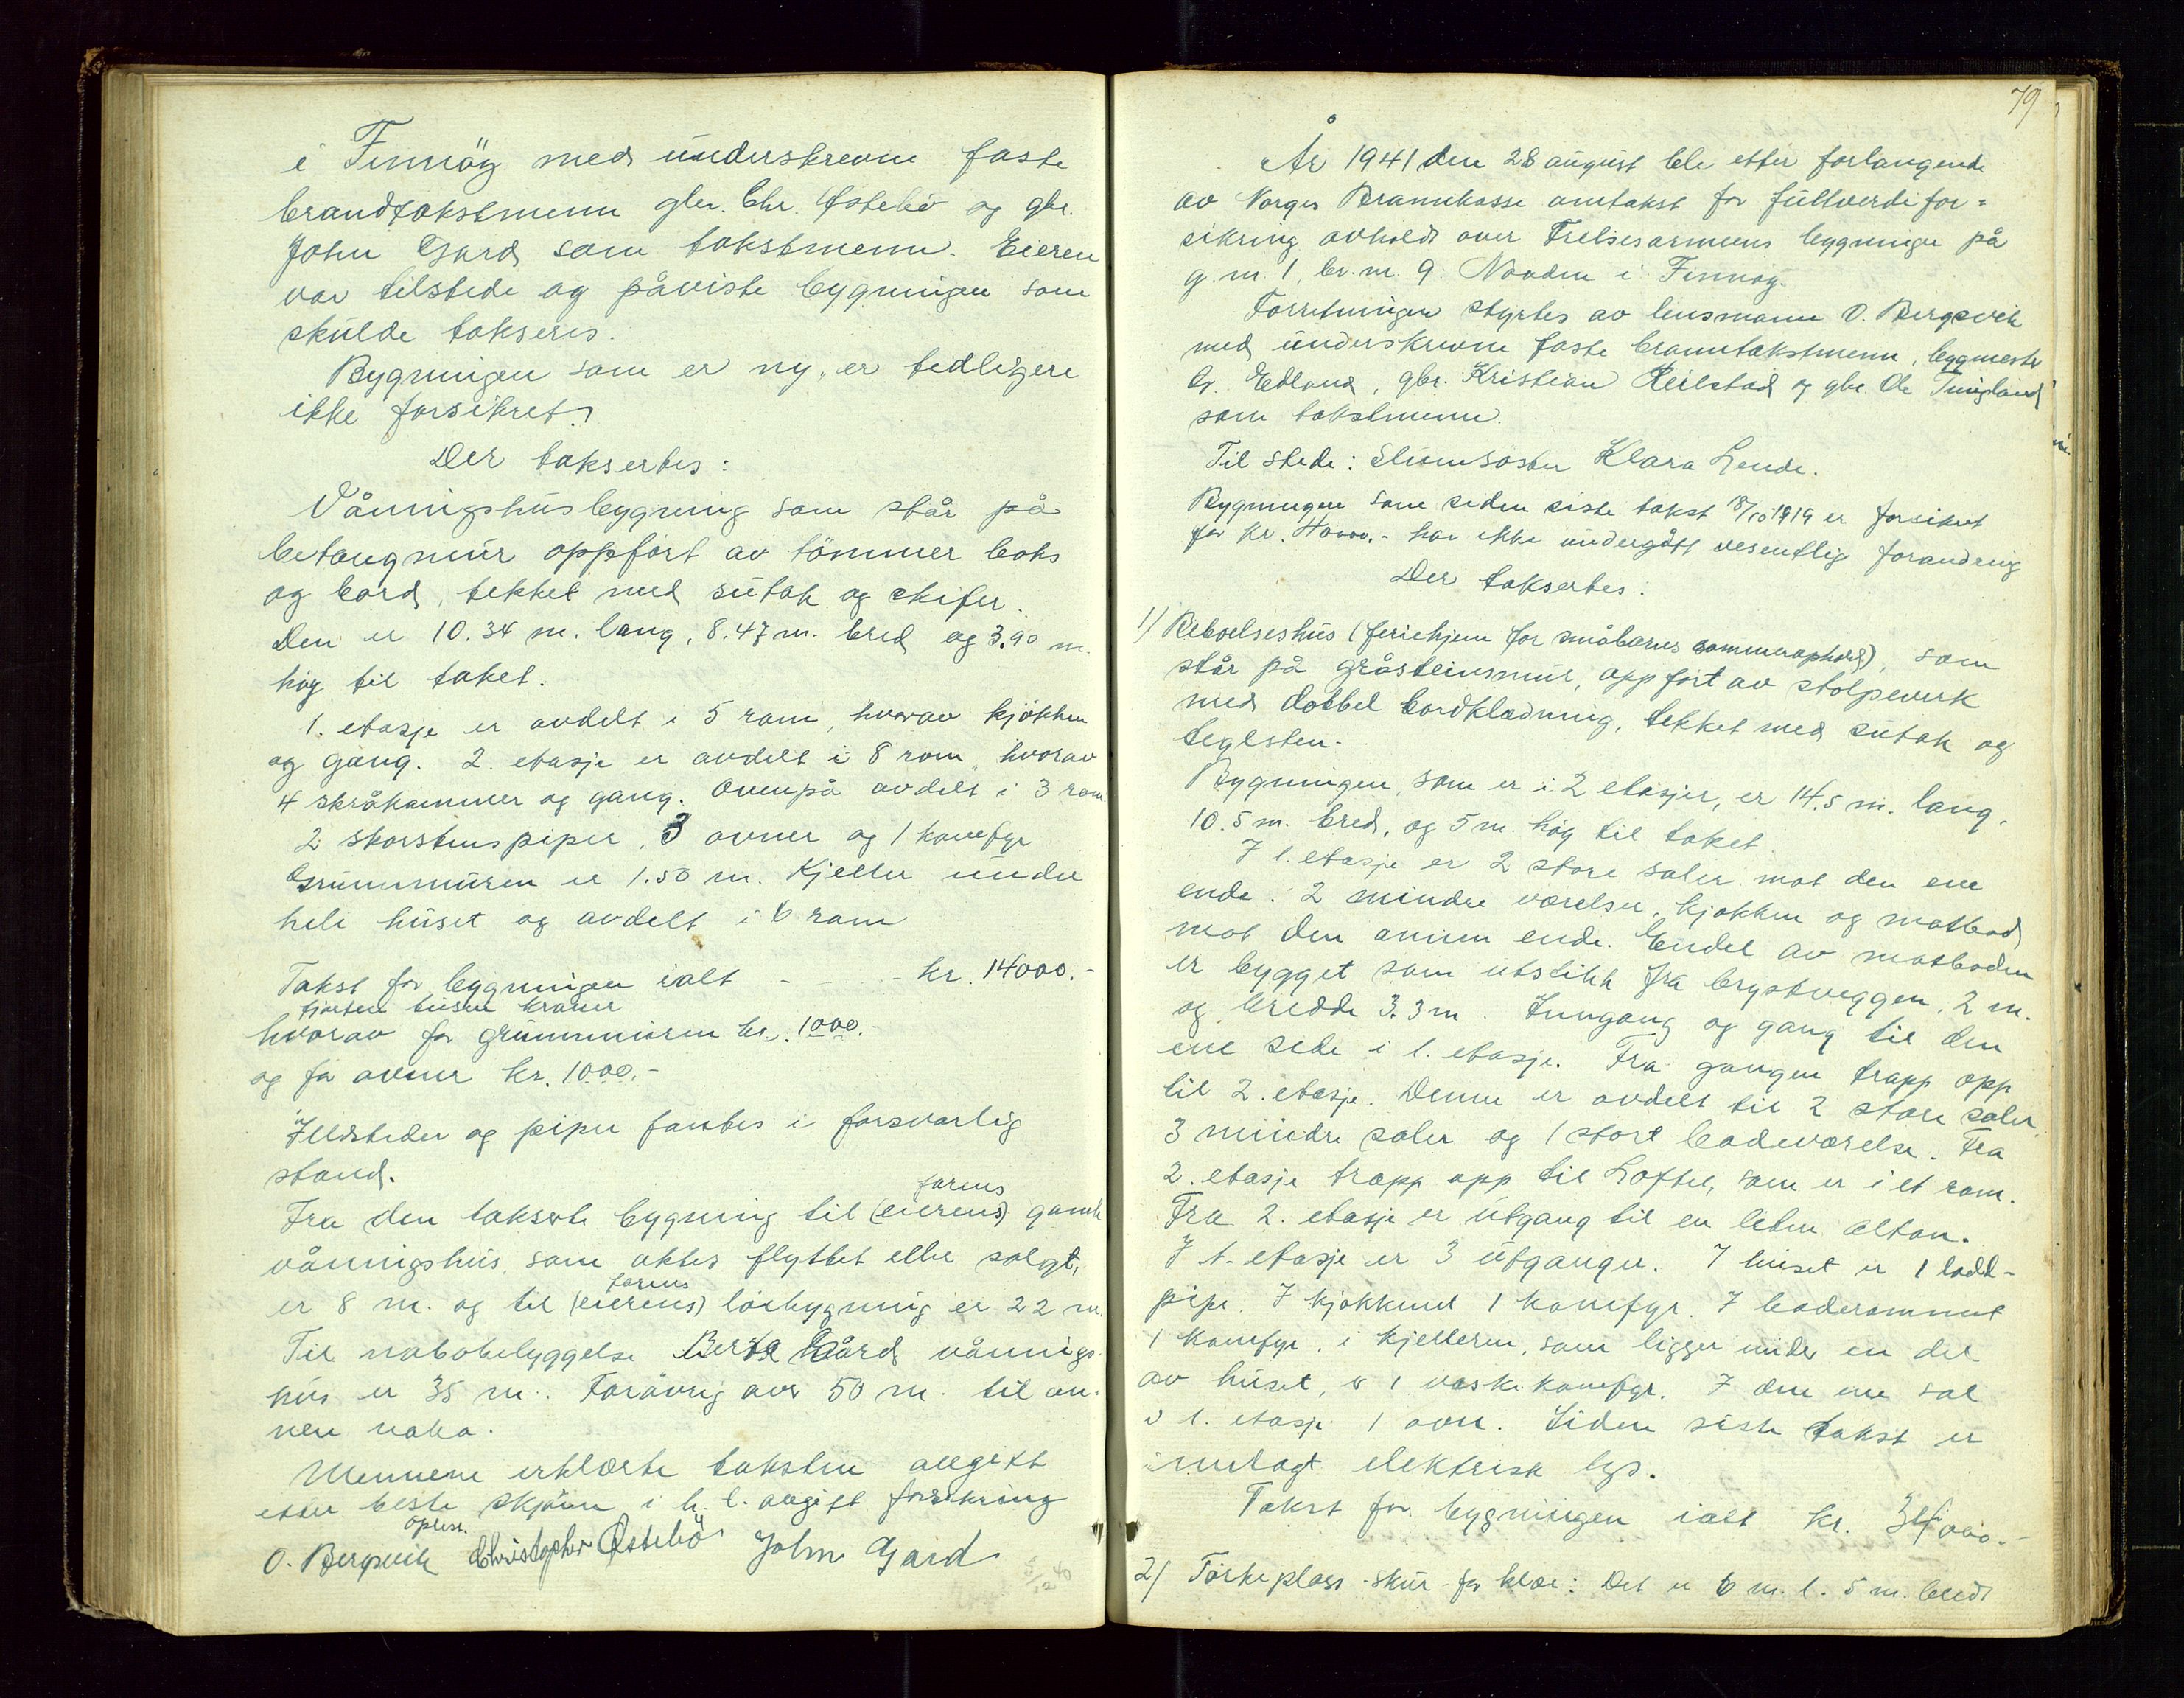 i Finnöy med underskrevne faste
brandtakstmenn gbr. Chr. Östebö og gbr.
John Gard som takstmenn. Eieren
var tilstede og påviste bygningen som
skulde takseres.
Bygningen som er ny, er tidligere
ikke forsikret.
Der taksertes:
Våningshusbygning som står på
betongmur oppfört av tömmer boks
og bord, tekket med sutak og skifer.
Den er 10.34 m. lang, 8.47 m. bred og 3.90 m.
höy til taket.
1. etasje er avdelt i 5 rom, hvorav kjökken
og gang. 2. etasje er avdelt i 8 rom, hvorav
4 skråkammer og gang. Ovenpå avdelt i 3 rom.
2 skorstenspiper, 3 ovner og 1 komfyr
Grunnmuren er 1.50 m. Kjeller under
hele huset og avdelt i 6 rom
Takst for bygningen ialt - - - kr. 14000.-
fjorten tusen kroner
hvorav for grunnmuren kr. 1000.-
og for ovner kr. 1000.-
Ildsteder og piper fantes i forsvarlig
stand.
farens
Fra den takserte bygning til (eierens) gamle
våningshus, som aktes flyttet eller solgt,
farens
er 8 m. og til (eierens) löebygning er 22 m.
Til nabobebyggelse Gård vånings-
hus er 35 m. Forövrig over 50 m. til an-
nen nabo.
Mennene erklærte taksten avgitt
etter beste skjönn i h. t. avgitt forsikring
Oplest.
O. Bergsvik Christopher Östebö John Gard
5/12 40
79
År 1941 den 28 august ble etter forlangende
av Norges Brannkasse omtakst for fullverdifor=
sikring avholdt over Frelsesarmeens bygninger på
g. nr. 1, br. nr. 9 Nåden i Finnöy.
Forretningen styrtes av lensmann O. Bergsvik
med underskrevne faste branntakstmenn, byggmester
G. Edland, gbr. Kristian Reilstad og gbr. Ole Tungland
som takstmenn.
Til stede: Slumsöster Klara Lende.
Bygningen som siden siste takst 18/10 1919 er forsikret
for kr. - har ikke undergått vesentlig forandring
Der taksertes:
1) Beboelseshus (feriehjem for småbarns sommerophold), som
står på gråsteinsmur, oppfört av stolpeverk
med dobbel bordklædning, tekket med sutak og
teglsten.
Bygningen, som er i 2 etasjer, er 14.5 m. lang,
10.5 m. bred, og 5 m. höy til taket.
I 1. etasje er 2 store saler mot den ene
ende. 2 mindre værelser, kjökken og matbod
mot den annen ende. Endel av matboden
er bygget som utstikk fra brystveggen, 2 m.
og bredde 3.3 m. Inngang og gang til den
ene side i 1. etasje. Fra gangen trapp opp
til 2. etasje. Denne er avdelt til 2 store saler,
3 mindre saler og 1 stort badeværelse. Fra
2. etasje trapp opp til Loftet, som er i et rom.
Fra 2. etasje er utgang til en liten altan.
I 1. etasje er 3 utganger. I huset er 1 lodd-
pipe. I kjökkenet 1 komfyr. I baderommet
1 komfyr, i kjelleren, som ligger under en del
av huset, er 1 vaske komfyr. I den ene sal
i 1. etasje 1 ovn. Siden siste takst er
innlagt elektrisk lys.
Takst for bygningen ialt kr. 34000.-
2) Törkeplass-skur for klær: Det er 6 m. l. 5 m. bredt